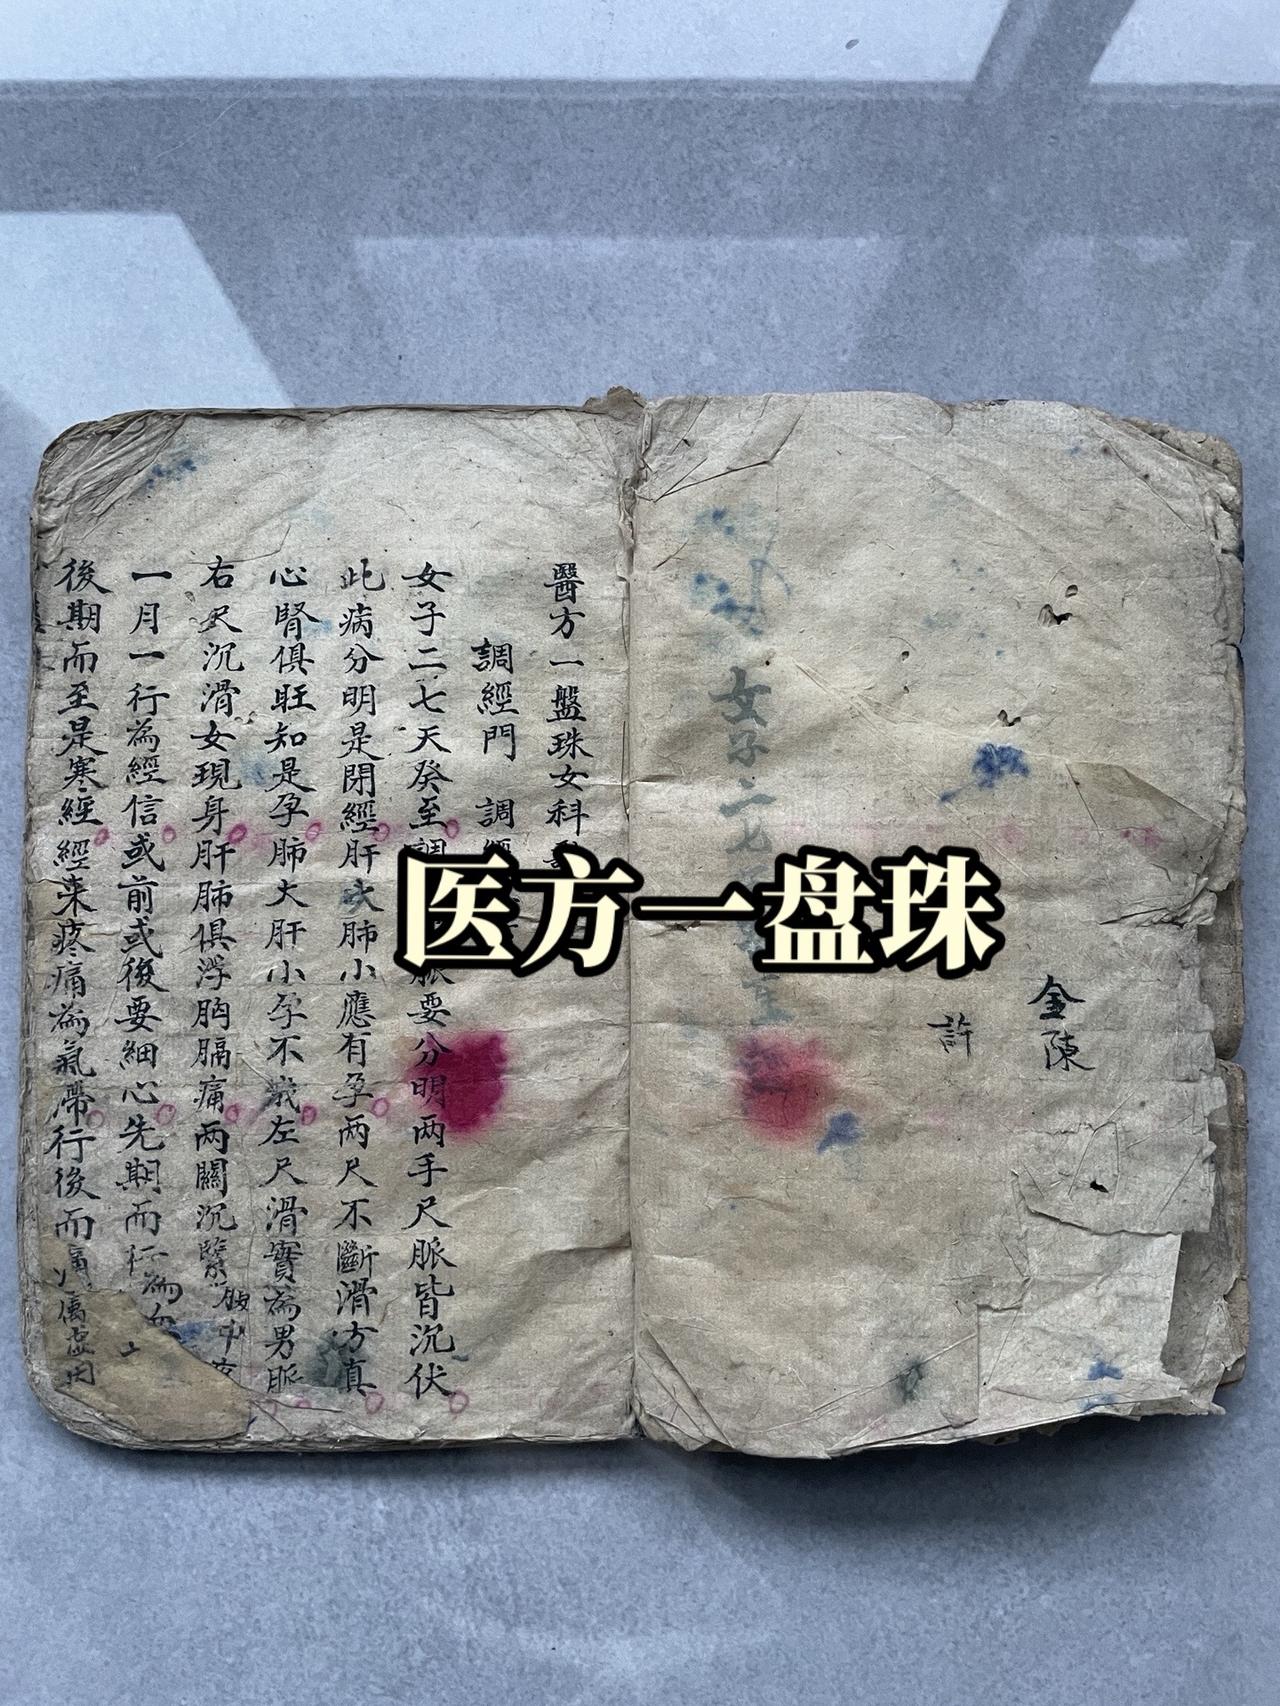 医方一盘珠
金陳
許
女子二七
醫方一盤珠女科
調經門 調經
女子二七天癸至調脈要分明两手尺脈皆沉伏
此病分明是閉經肝大肺小應有孕两尺不斷滑方真
心腎俱旺知是孕肺大肝小孕不成左尺滑實為男脈
右尺沉滑女現身肝肺俱浮胸膈痛两關沉緊腹中
一月一行為經信或前或後要細心先期而行為血
後期而至是寒經經来疼痛為氣滯行後而痛